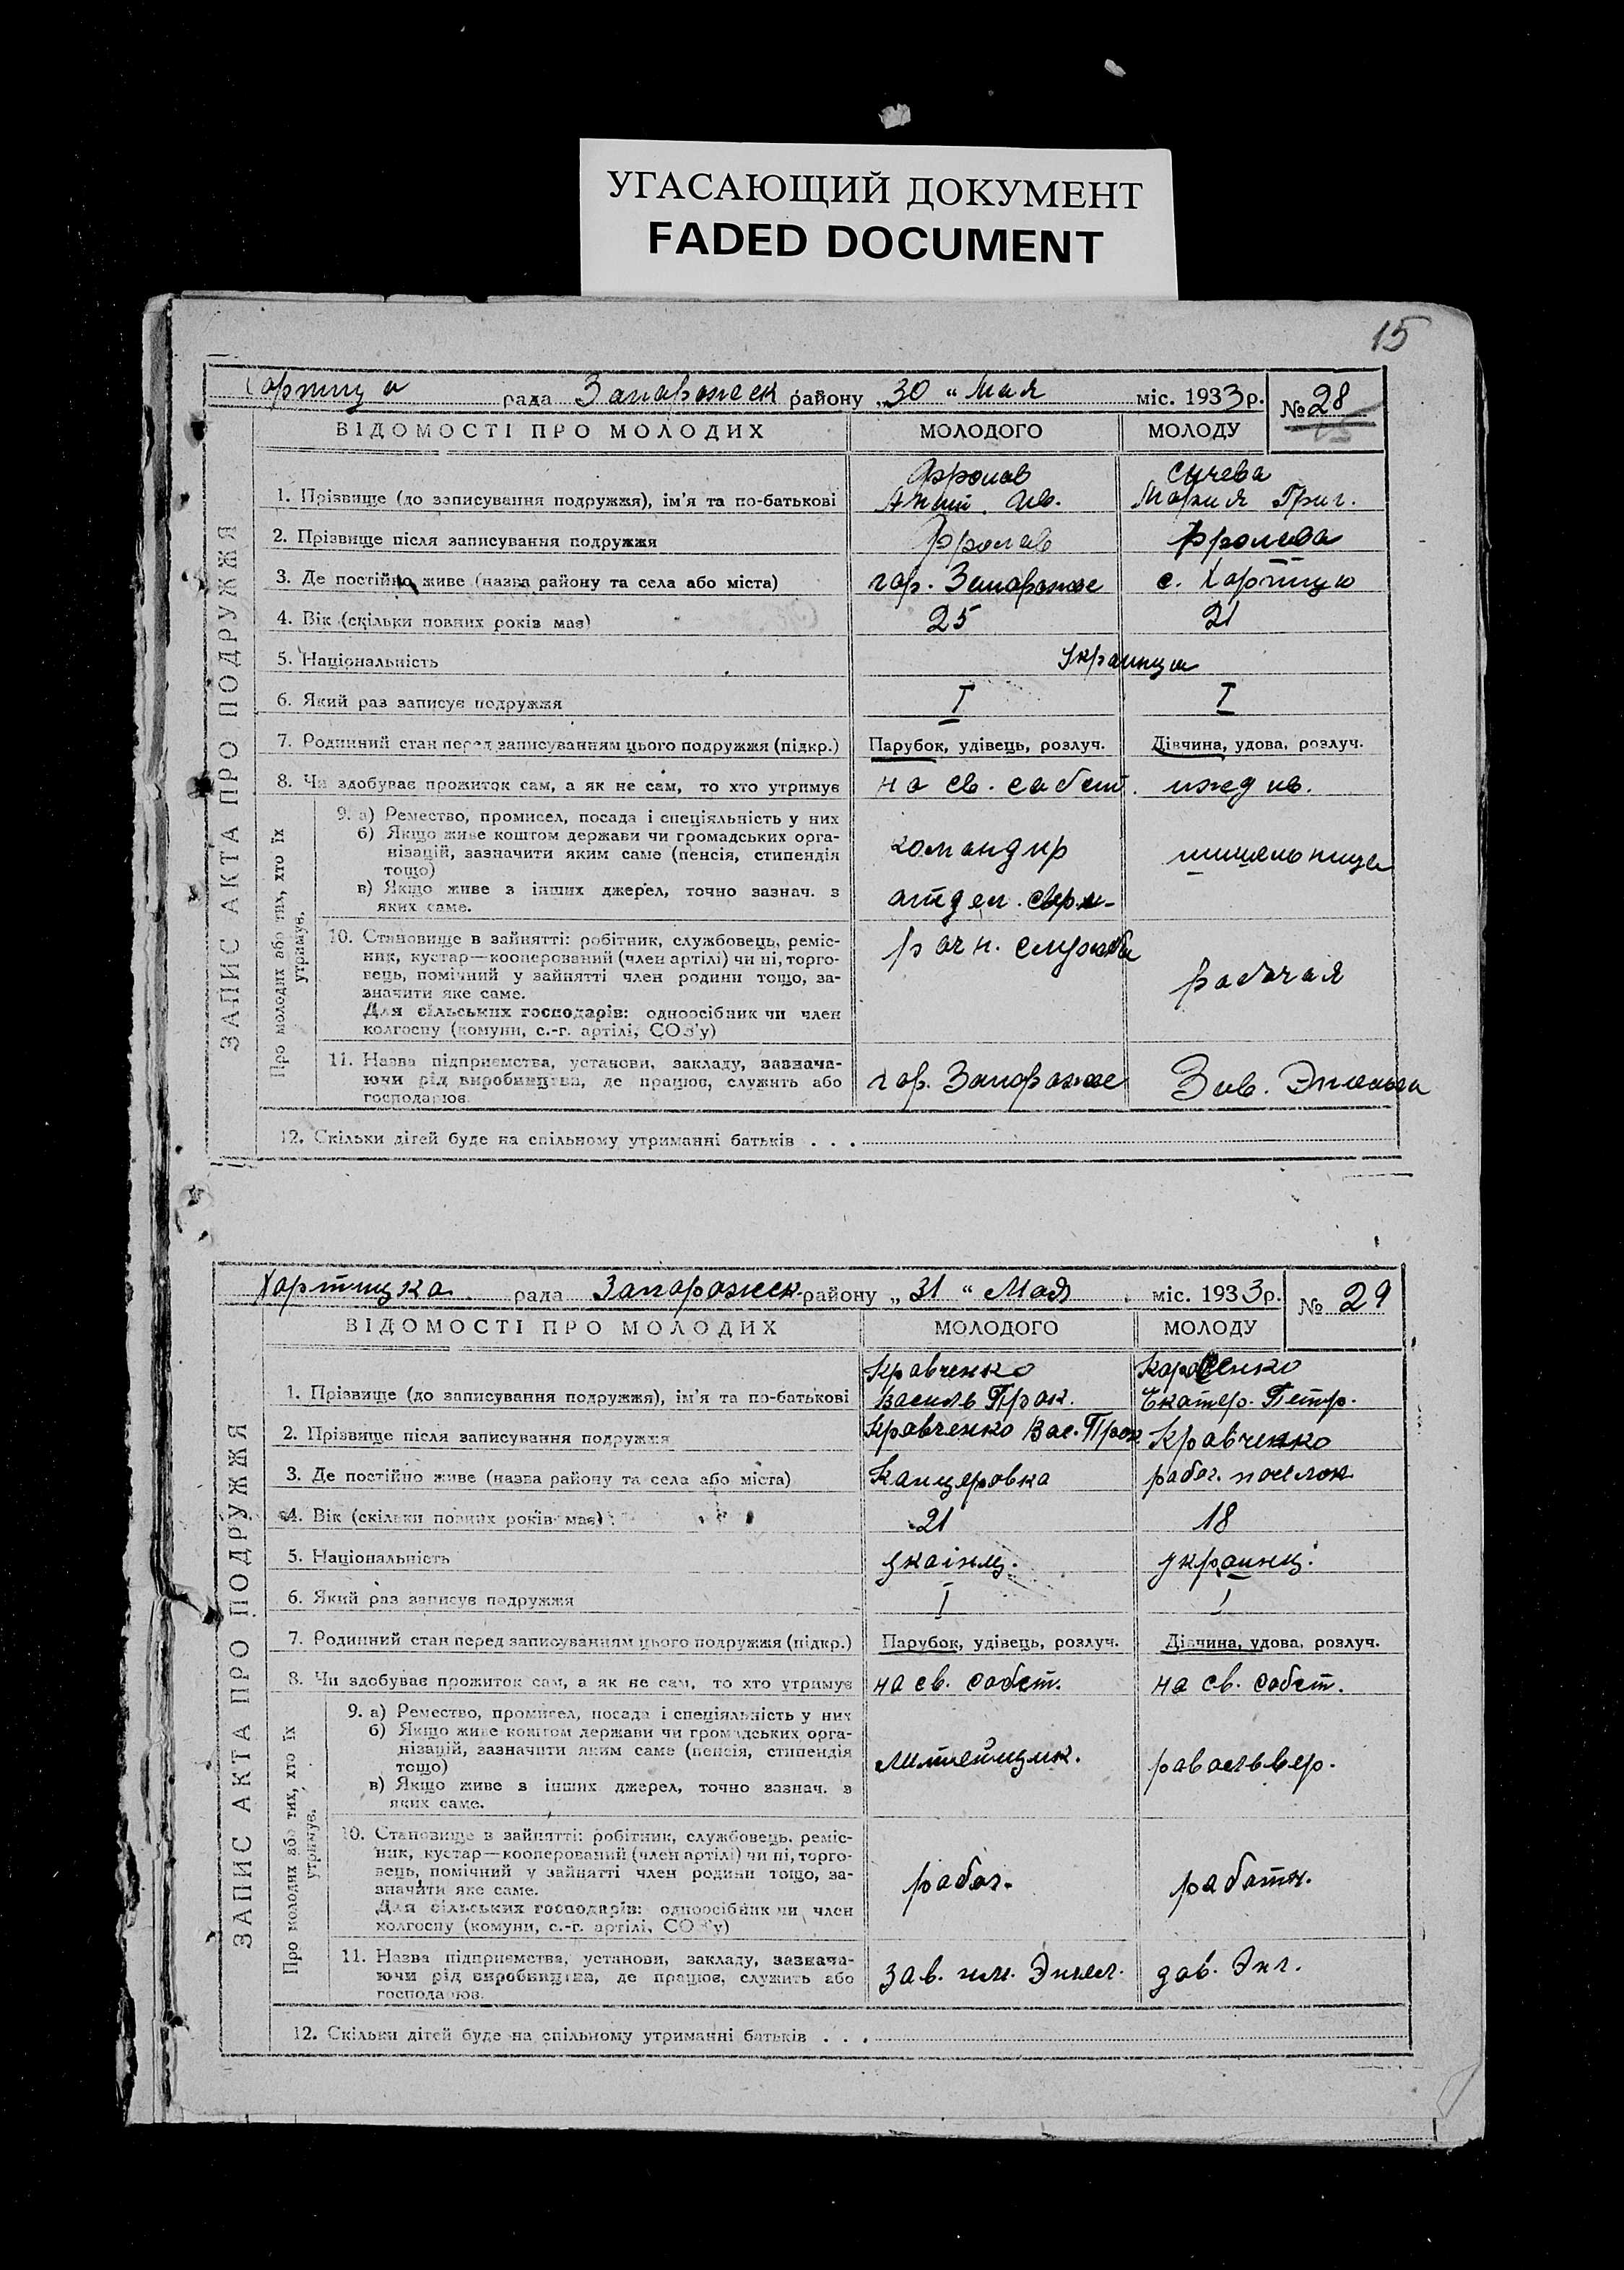 УГАСАЮЩИЙ ДОКУМЕНТ
FADED DOCUMENT
15
Хортица рада Запорожск району „30“ Мая міс. 1933р. № 28
ВІДОМОСТІ ПРО МОЛОДИХ МОЛОДОГО МОЛОДУ
ЗАПИС АКТА ПРО ПОДРУЖЖЯ
Фролов Сычева
1. Прізвище (до записування подружжя), ім’я та по-батькові Ив. Мария Григ.
2. Прізвище після записування подружжя Фролов Фролова
3. Де постійно живе (назва району та села або міста) гор. Запорожье с. Хортицю
4. Вік (скільки повних років має) 25 21
5. Національність Украинцы
6. Який раз записує подружжя I I
7. Родинний стан перед записуванням цього подружжя (підкр.) Парубок, удівець, розлуч. Дівчина, удова, розлуч.
8. Чи здобуває прожиток сам, а як не сам, то хто утримує на св. собст. иждив.
Про молодих або тих, хто їх утримує.
9. а) Ремество, промисел, посада і спеціяльність у них
б) Якщо живе коштом держави чи громадських орга-
нізацій, зазначити яким саме (пенсія, стипендія
тощо)
в) Якщо живе з інших джерел, точно зазнач. з
яких саме.
командир
отдел.
10. Становище в зайнятті: робітник, службовець, реміс-
ник, кустар—кооперований (член артілі) чи ні, торго-
вець, помічний у зайнятті член родини тощо, за-
значити яке саме.
Для сільських господарів: одноосібник чи член
колгоспу (комуни, с.-г. артілі, СОЗ’у)
службы
рабочая
11. Назва підприємства, установи, закладу, зазнача-
ючи рід виробництва, де працює, служить або
господарює.
гор. Запорожье Зав. Энгельса
12. Скільки дітей буде на спільному утриманні батьків . . .
Хортицка рада Запорожск району „31“ Мая міс. 1933р. № 29
ВІДОМОСТІ ПРО МОЛОДИХ МОЛОДОГО МОЛОДУ
ЗАПИС АКТА ПРО ПОДРУЖЖЯ
Кравченко
1. Прізвище (до записування подружжя), ім’я та по-батькові Василь Прок. Екатер. Петр.
2. Прізвище після записування подружжя Кравченко Вас. Прок Кравченко
3. Де постійно живе (назва району та села або міста) Канцеровка рабоч. поселок
4. Вік (скільки повних років має) 21 18
5. Національність укаінц. украинц.
6. Який раз записує подружжя I I
7. Родинний стан перед записуванням цього подружжя (підкр.) Парубок, удівець, розлуч. Дівчина, удова, розлуч.
8. Чи здобуває прожиток сам, а як не сам, то хто утримує на св. собст. на св. собст.
Про молодих або тих, хто їх утримує.
9. а) Ремество, промисел, посада і спеціяльність у них
б) Якщо живе коштом держави чи громадських орга-
нізацій, зазначити яким саме (пенсія, стипендія
тощо)
в) Якщо живе з інших джерел, точно зазнач. з
яких саме.
литейщик. равольвер.
10. Становище в зайнятті: робітник, службовець, реміс-
ник, кустар—кооперований (член артілі) чи ні, торго-
вець, помічний у зайнятті член родини тощо, за-
значити яке саме.
Для сільських господарів: одноосібник чи член
колгоспу (комуни, с.-г. артілі, СОЗ’у)
рабоч. работн.
11. Назва підприємства, установи, закладу, зазнача-
ючи рід виробництва, де працює, служить або
господарює.
зав. им. Энгел. зав. Энг.
12. Скільки дітей буде на спільному утриманні батьків . . .